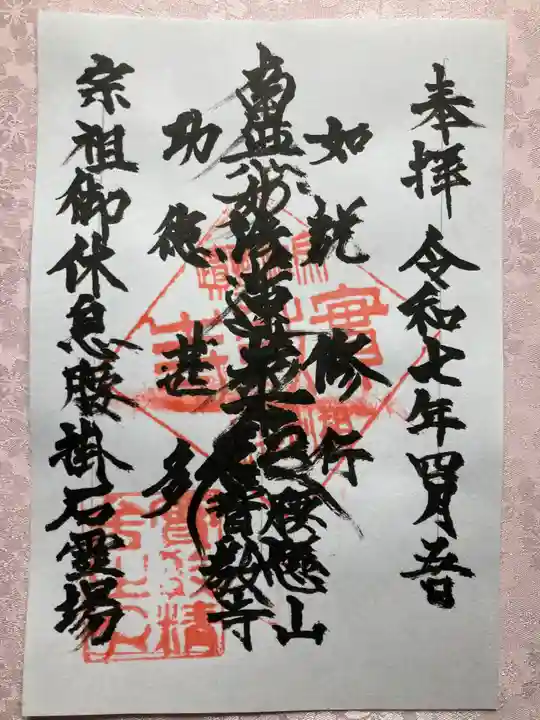 奉拝 令和七年四月吾
如説修行
腰懸山
南無妙法蓮華経
普教寺
功徳甚多
宗祖御休息腰掛石霊場